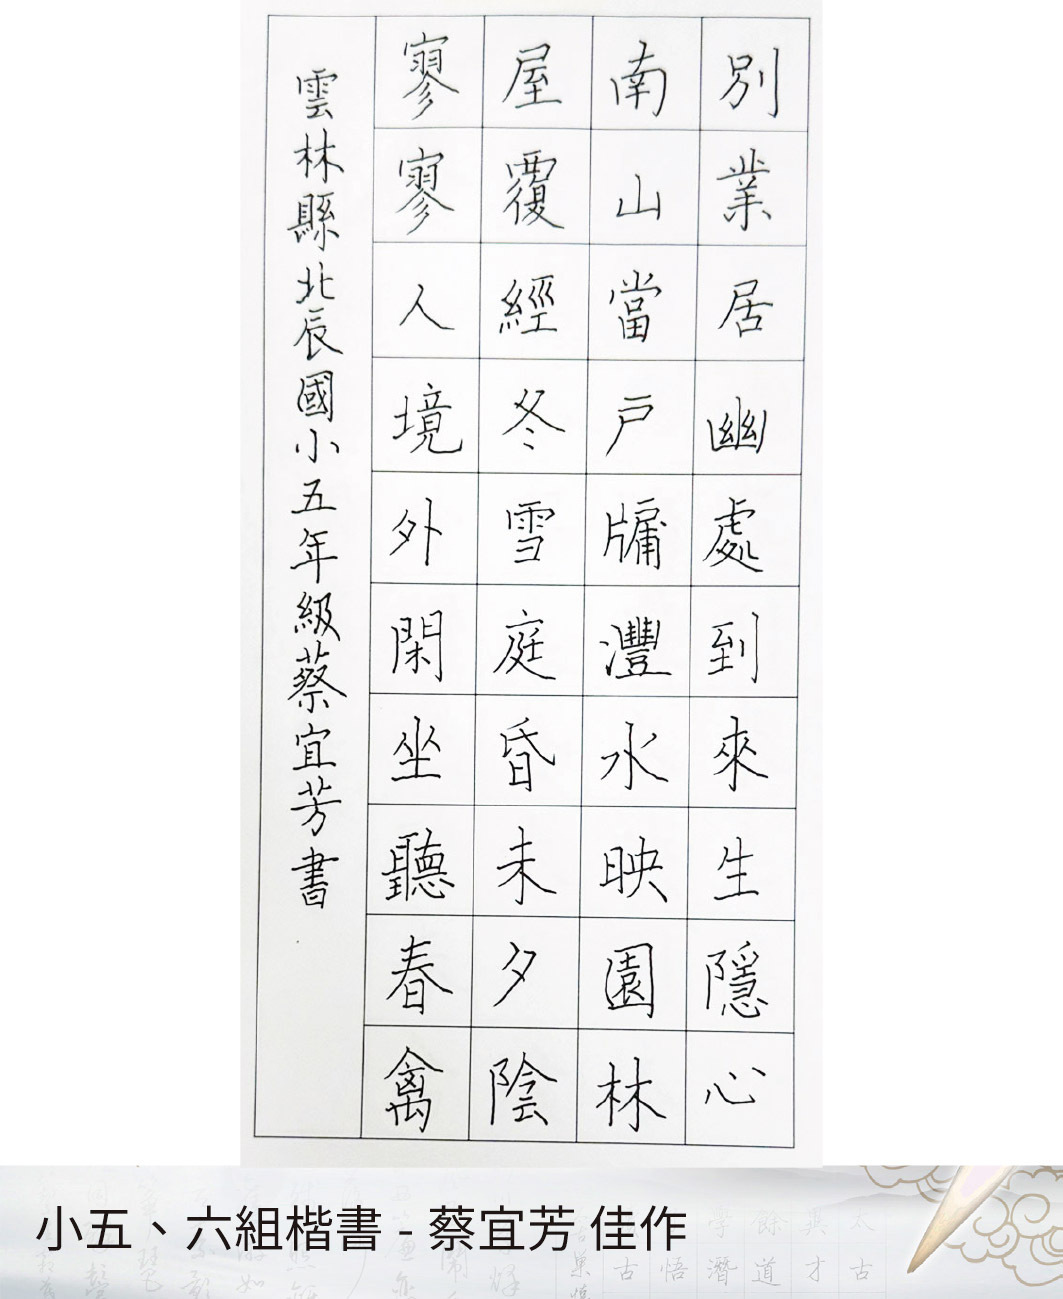 別業居幽處到來生隱心
南山當戶牖灃水映園林
屋覆經冬雪庭昏未夕陰
寥寥人境外閑坐聽春禽
雲林縣北辰國小五年級蔡宜芳書
小五、六組楷書 - 蔡宜芳 佳作